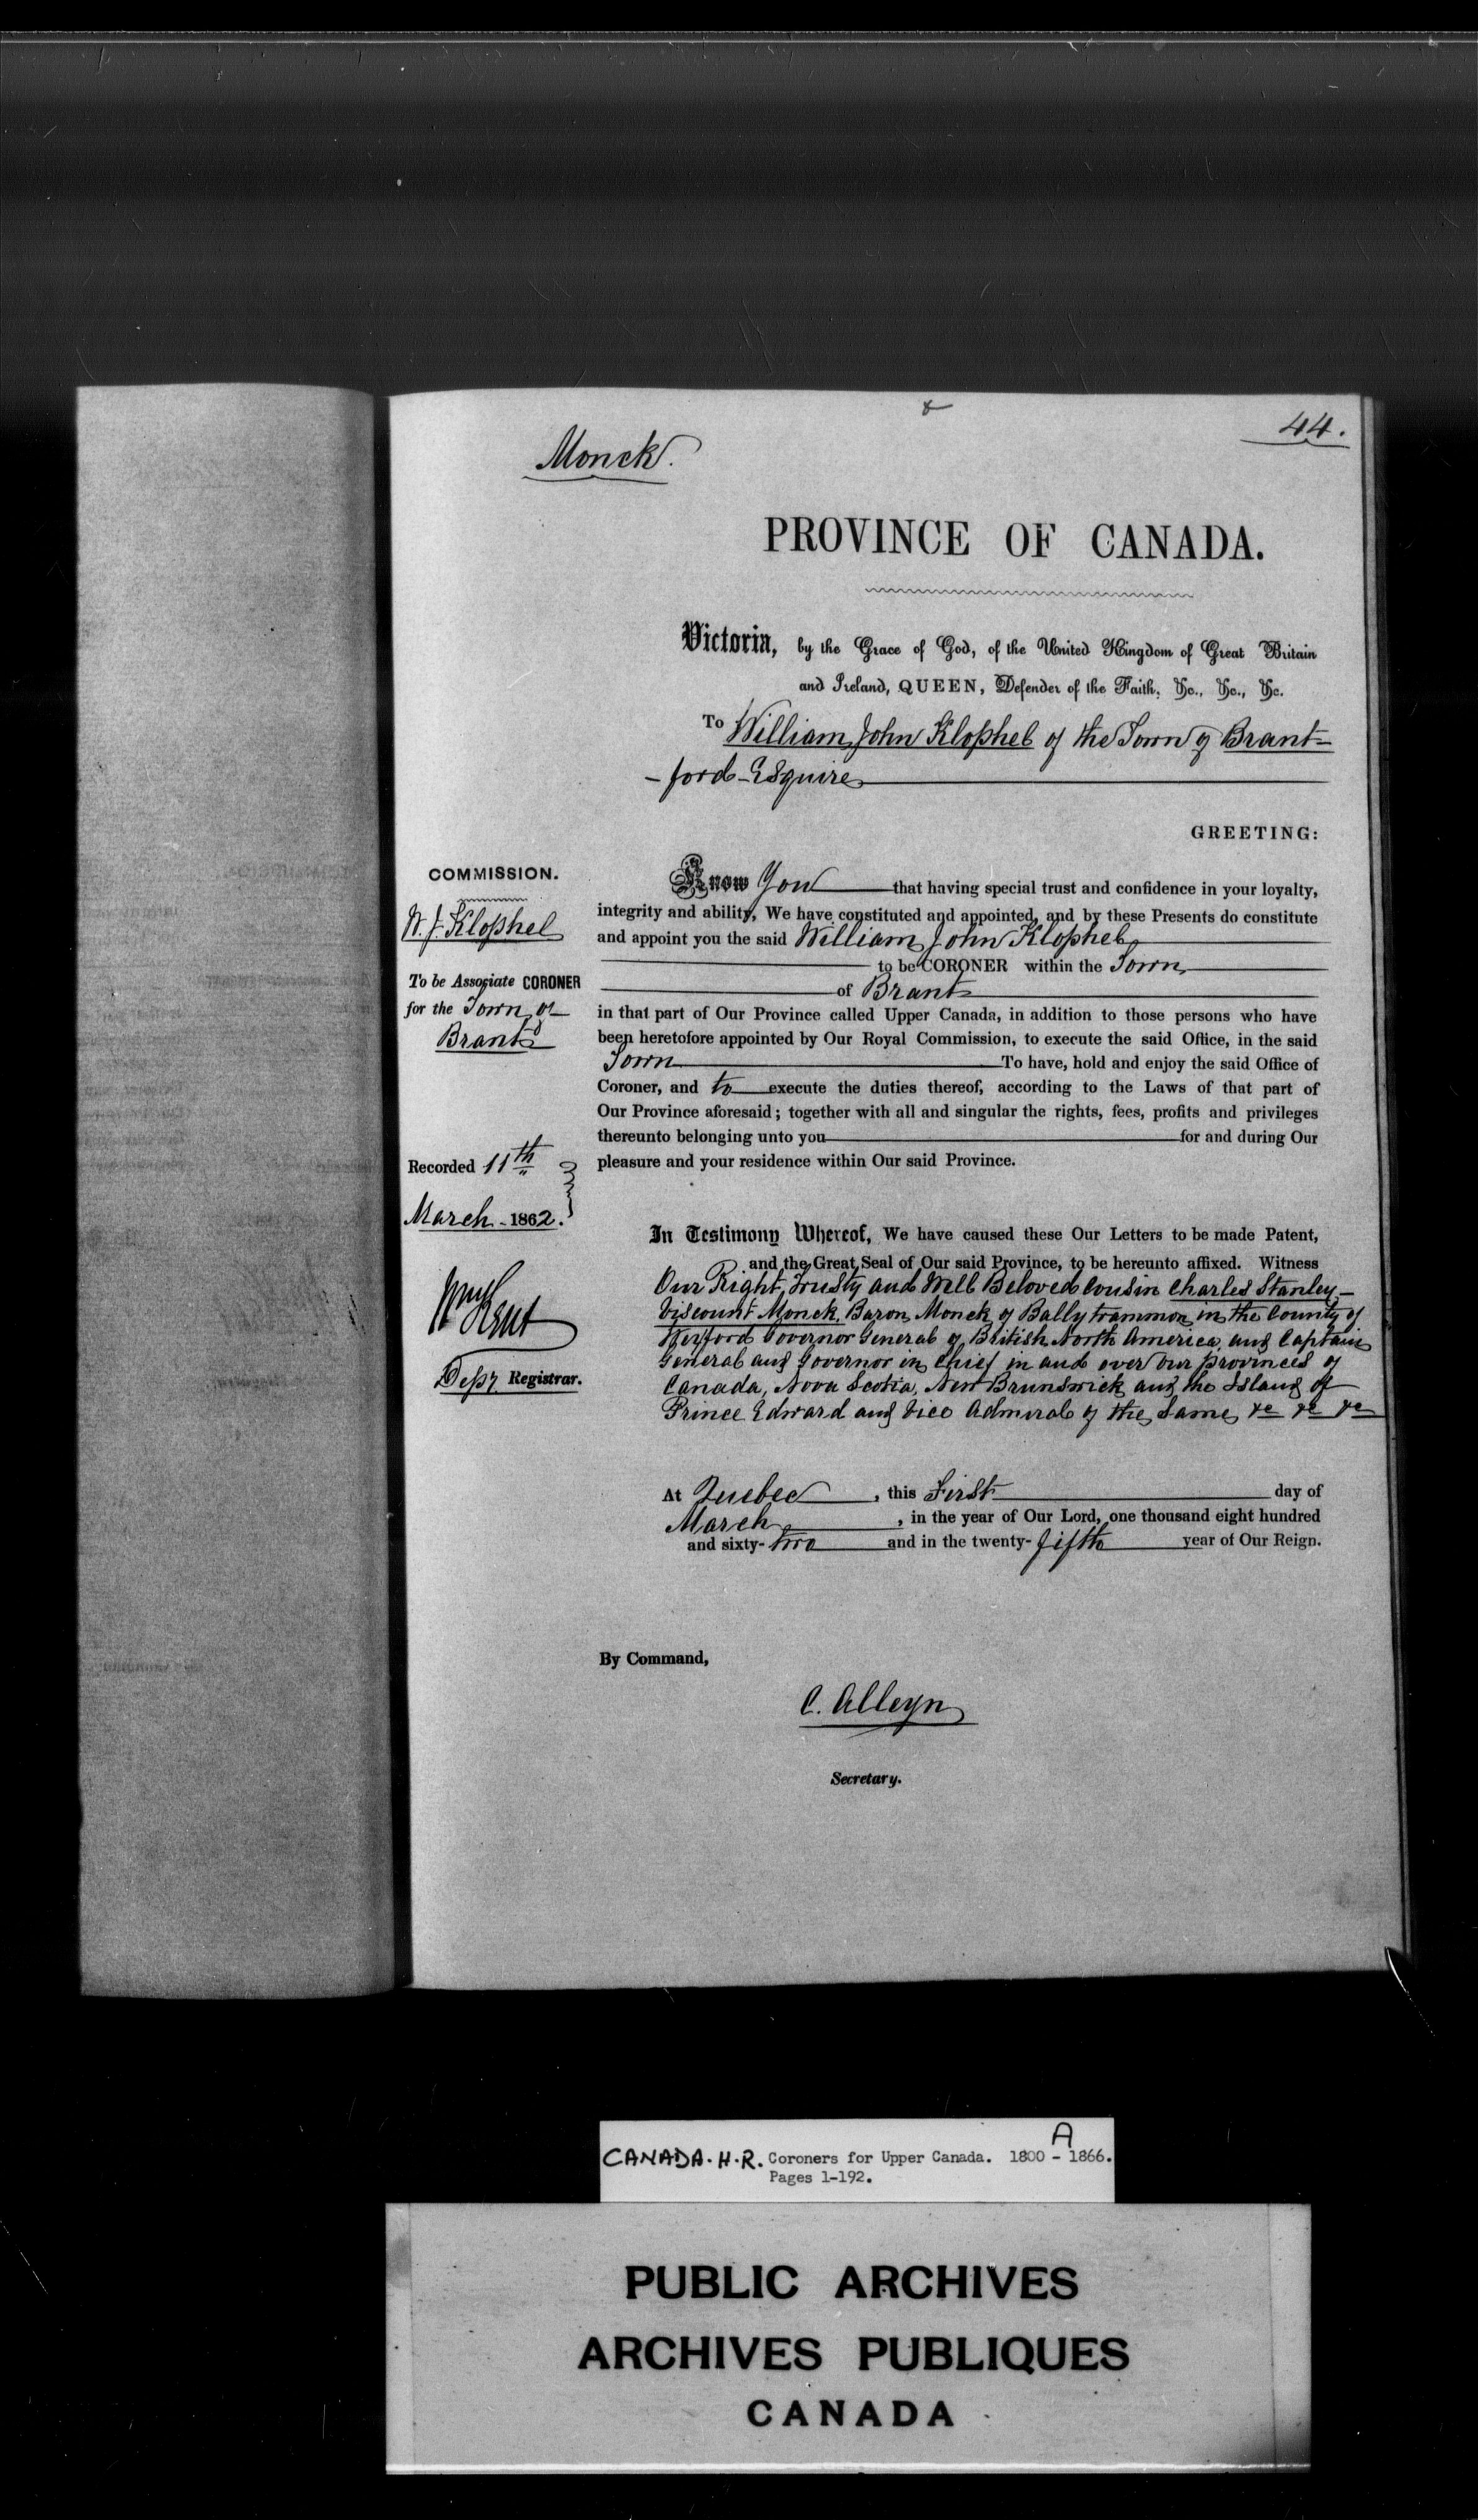 44.
Monck.
PROVINCE OF CANADA.
Victoria, by the Grace of God, of the United Kingdom of Great Britain
and Ireland, QUEEN, Defender of the Faith, &c., &c., &c.
To William John Klophel of the Town of Brant-
-ford Esquire
GREETING:
COMMISSION.
W. J. Klophel
To be Associate CORONER
for the Town of
Brant
Recorded 11th
March - 1862.
Wm Kent
Depy Registrar.
Know You that having special trust and confidence in your loyalty,
integrity and ability, We have constituted and appointed, and by these Presents do constitute
and appoint you the said William John Klophel
to be CORONER within the Town
of Brant
in that part of Our Province called Upper Canada, in addition to those persons who have
been heretofore appointed by Our Royal Commission, to execute the said Office, in the said
Town To have, hold and enjoy the said Office of
Coroner, and to execute the duties thereof, according to the Laws of that part of
Our Province aforesaid; together with all and singular the rights, fees, profits and privileges
thereunto belonging unto you for and during Our
pleasure and your residence within Our said Province.
In Testimony Whereof, We have caused these Our Letters to be made Patent,
and the Great Seal of Our said Province, to be hereunto affixed. Witness
Our Right Trusty and Well Beloved Cousin Charles Stanley
Viscount Monck, Baron Monck of Ballytrammon in the County of
Wexford Governor General of British North America, and Captain
General and Governor in Chief in and over Our Provinces of
Canada, Nova Scotia, New Brunswick and the Island of
Prince Edward and Vice Admiral of the Same &c &c &c
At Quebec, this First day of
March, in the year of Our Lord, one thousand eight hundred
and sixty-two and in the twenty-fifth year of Our Reign.
By Command,
C. Alleyn
Secretary.
A
CANADA. H. R. Coroners for Upper Canada. 1800 - 1866.
Pages 1-192.
PUBLIC ARCHIVES
ARCHIVES PUBLIQUES
CANADA